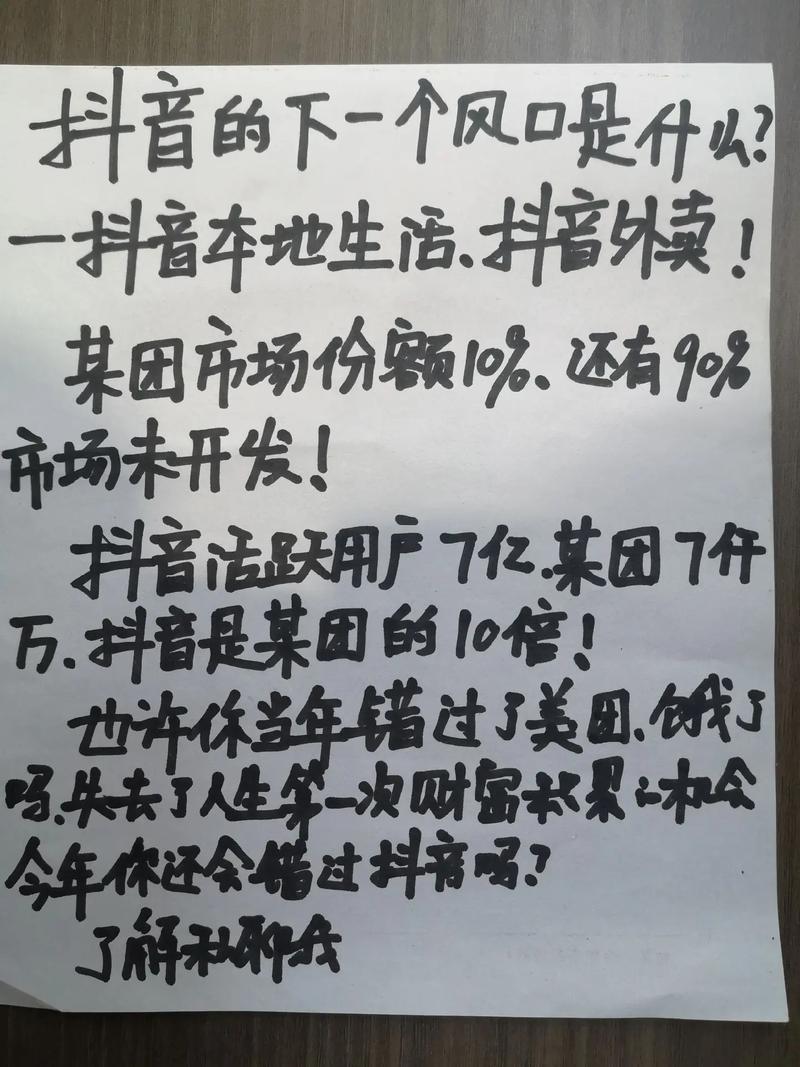 抖音的下一个风口是什么?
一抖音本地生活、抖音外卖!
某团市场份额10%、还有90%
市场未开发!
抖音活跃用户7亿.某团7仟
万、抖音是某团的10倍!
也许你当年错过了美团、饿了
吗、失去了人生第一次财富积累的机会
今年你还会错过抖音吗?
了解私聊我